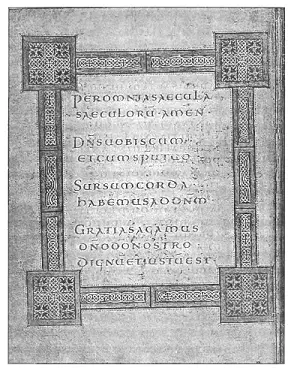 PEROMNIASAECULA
SAECULORU·AMEN·
DN̄SUOBISCUM·
ETCUMSPUTUO·
SURSUMCORDA·
HABEMUSADDNM·
GRATIASAGAMUS
DNODŌNOSTRO·
DIGNUETIUSTUEST·